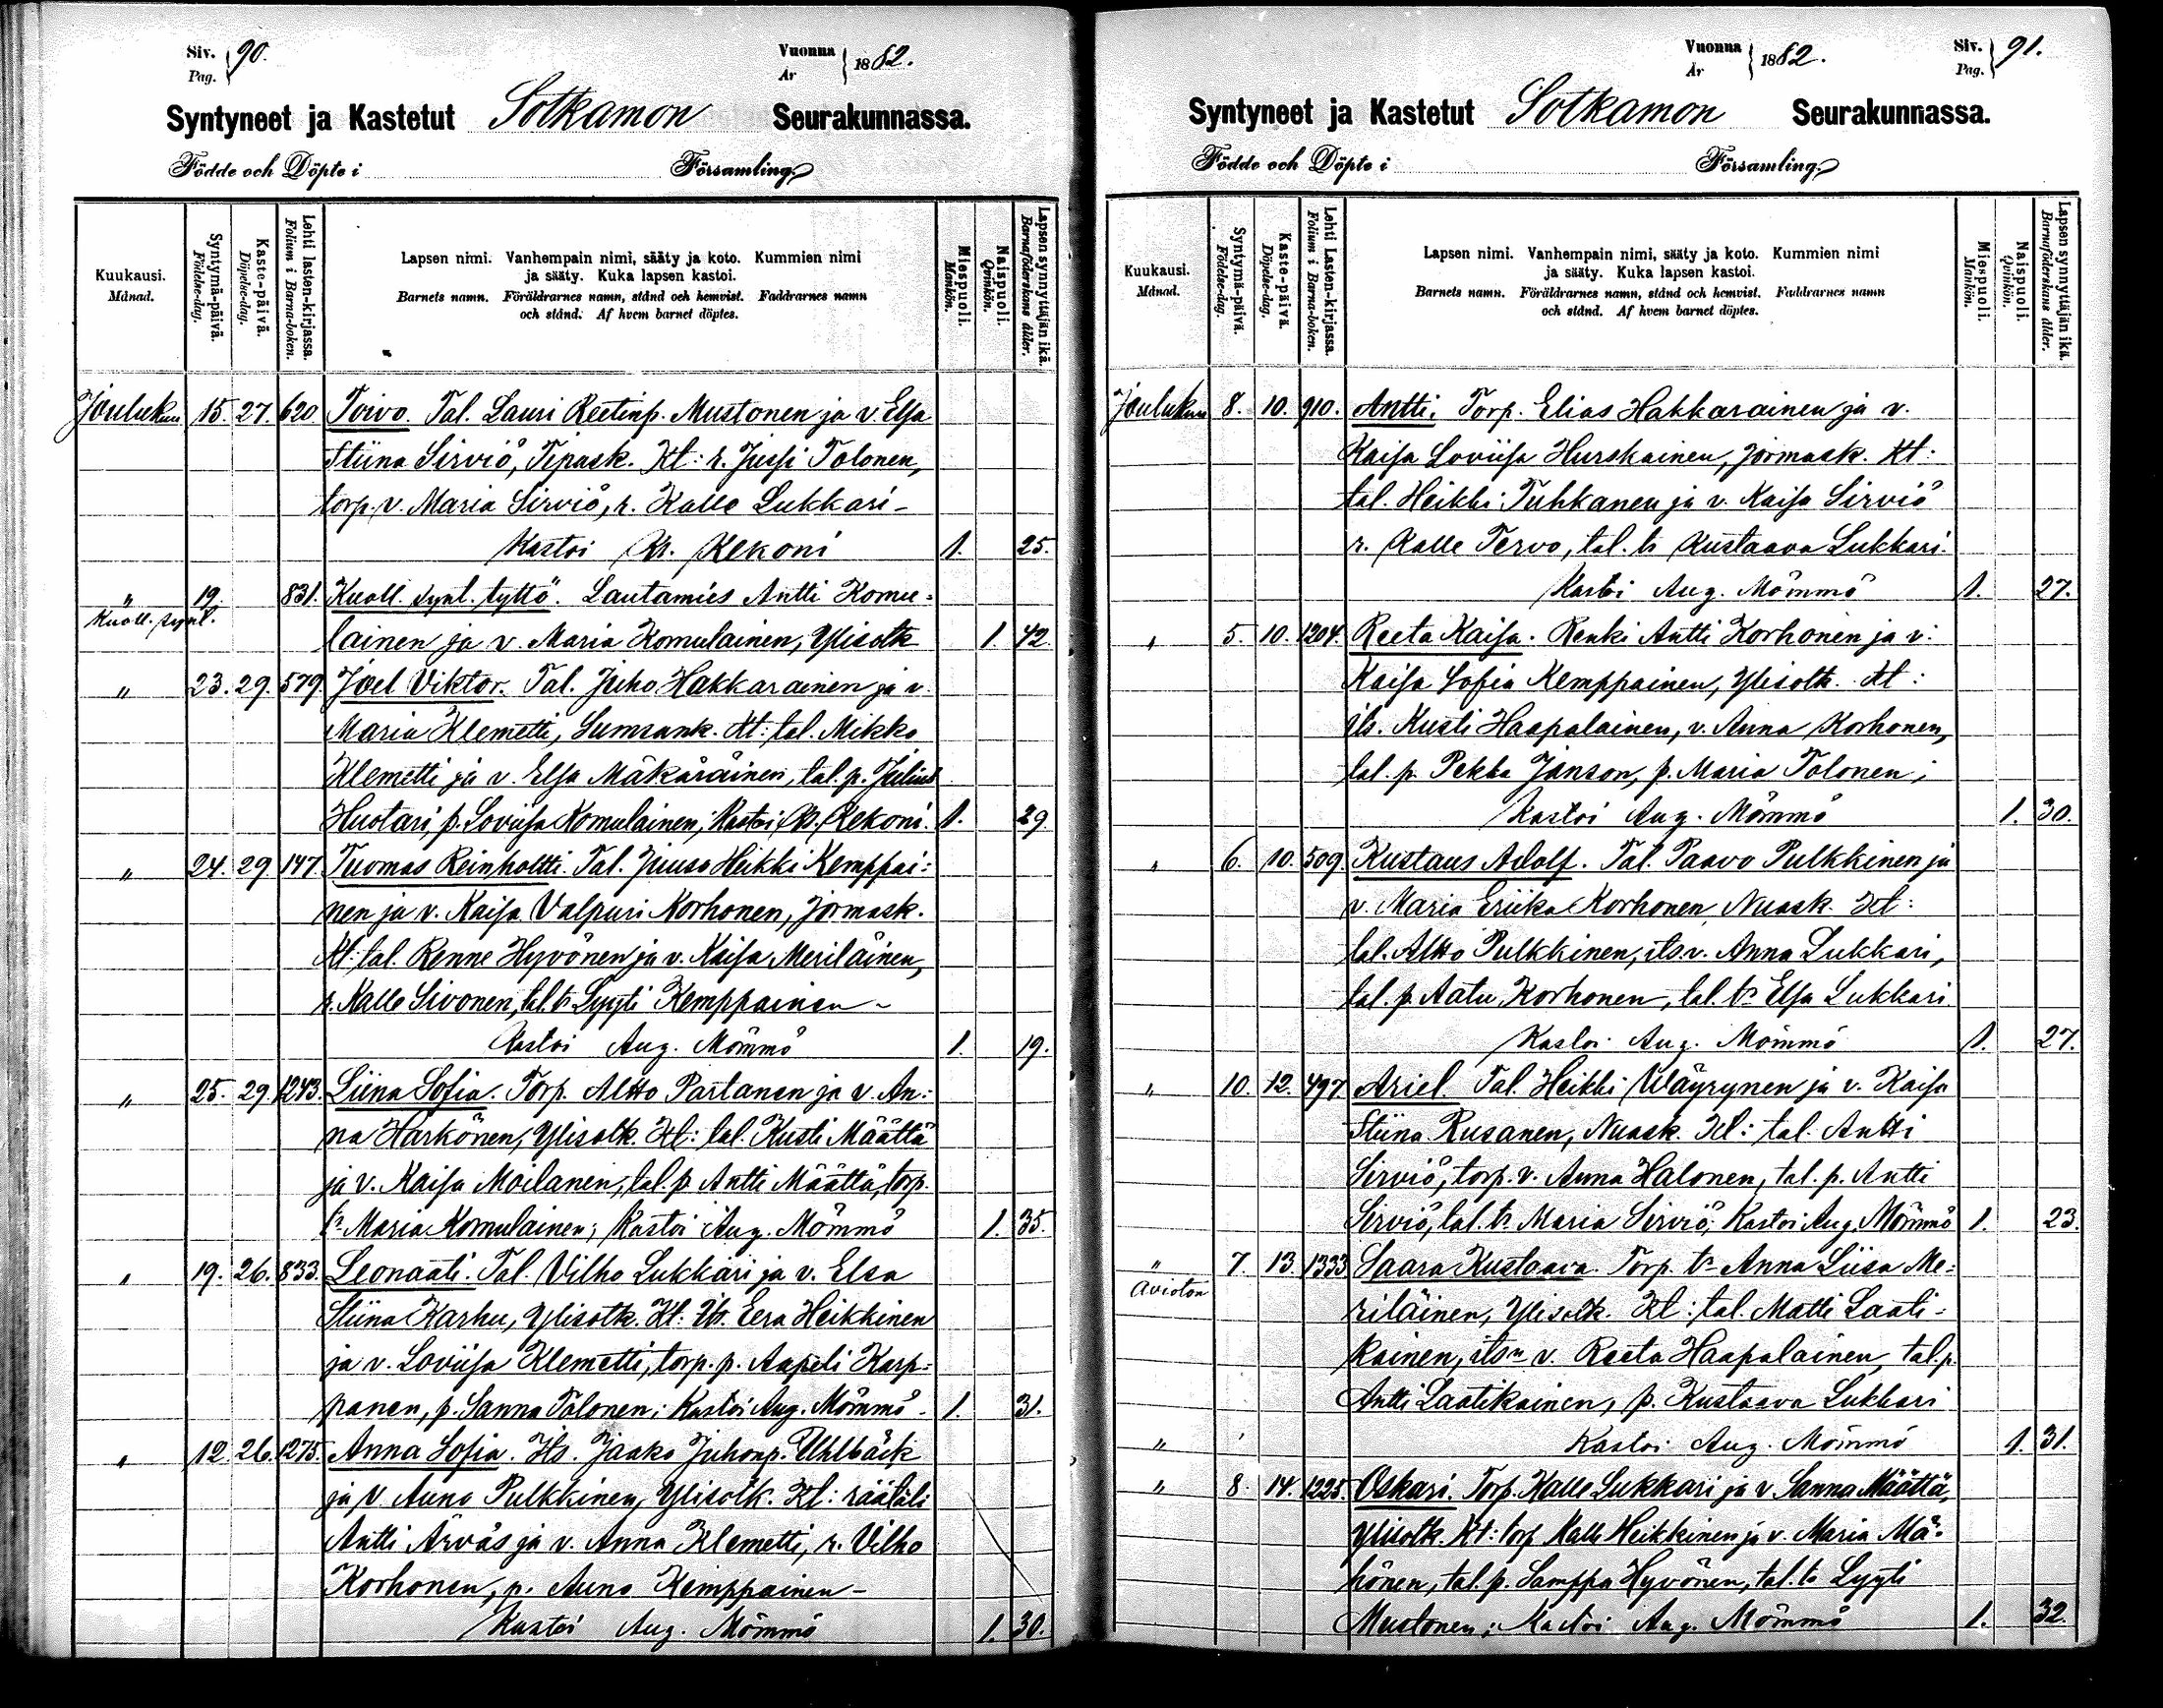 Siv. Pag. 90.
Vuonna År 1882.
Syntyneet ja Kastetut Sotkamon Seurakunnassa.
Födde och Döpte i Församling.
Kuukausi. Månad.
Syntymä-päivä. Födelse-dag.
Kaste-päivä. Döpelse-dag.
Lehti lasten-kirjassa. Folium i Barna-boken.
Lapsen nimi. Vanhempain nimi, sääty ja koto. Kummien nimi
ja sääty. Kuka lapsen kastoi.
Barnets namn. Föräldrarnes namn, stånd och hemvist. Faddrarnes namn
och stånd. Af hvem barnet döptes.
Miespuoli. Mankön.
Naispuoli. Qvinkön.
Lapsen synnyttäjän ikä. Barnaföderskans ålder.
Joulukuu 15. 27. 620. Toivo. Tal. Lauri Reetinp. Mustonen ja v. Elsa
Stiina Sirviö, Tipask. Kt: r. Jussi Tolonen,
torp. v. Maria Sirviö, r. Kalle Lukkari -
Kastoi Kr. Rekoni 1. 25.
" 19. 831. Kuoll. synt. tyttö. Lautamies Antti Komu=
Kuoll. synt.
lainen ja v. Maria Komulainen, Ylisotk 1. 42.
" 23. 29. 579. Joel Viktor. Tal. Juho Hakkarainen ja v.
Maria Klemetti, Sumsank. Kt: tal. Mikko
Klemetti ja v. Elsa Mäkäräinen, tal. p. Julius
Huotari, p. Loviisa Komulainen; Kastoi Kr. Rekoni. 1. 29.
" 24. 29. 147. Tuomas Reinholtti. Tal. Juuso Heikki Kemppai=
nen ja v. Kaisa Valpuri Korhonen, Jormask.
Kt: tal. Renne Hyvönen ja v. Kaisa Meriläinen,
r. Kalle Sivonen, tal. tr Lyyti Kemppainen -
Kastoi Aug. Mömmö 1. 19.
" 25. 29. 1243. Liina Sofia. Torp. Altto Partanen ja v. An=
na Härkönen, Ylisotk. Kt: tal. Kusti Määttä
ja v. Kaisa Moilanen, tal. p. Antti Määttä, torp.
tr Maria Komulainen; Kastoi Aug. Mömmö 1. 35.
" 19. 26. 833. Leonaati. Tal. Vilho Lukkari ja v. Elsa
Stiina Karhu, Ylisotk. Kt: Its. Eera Heikkinen
ja v. Loviisa Klemetti, torp. p. Aapeli Karp=
panen, p. Sanna Tolonen; Kastoi Aug. Mömmö - 1. 31.
" 12. 26. 1275. Anna Sofia. Its. Jaako Juhonp. Uhlbäck
ja v. Auno Pulkkinen, Ylisotk. Kt: räätäli
Antti Ärväs ja v. Anna Klemetti, r. Vilho
Korhonen, p. Auno Kemppainen -
Kastoi Aug. Mömmö 1. 30.
Vuonna År 1882.
Siv. Pag. 91.
Syntyneet ja Kastetut Sotkamon Seurakunnassa.
Födde och Döpte i Församling.
Kuukausi. Månad.
Syntymä-päivä. Födelse-dag.
Kaste-päivä. Döpelse-dag.
Lehti Lasten-kirjassa. Folium i Barna-boken.
Lapsen nimi. Vanhempain nimi, sääty ja koto. Kummien nimi
ja sääty. Kuka lapsen kastoi.
Barnets namn. Föräldrarnes namn, stånd och hemvist. Faddrarnes namn
och stånd. Af hvem barnet döptes.
Miespuoli. Mankön.
Naispuoli. Qvinkön.
Lapsen synnyttäjän ikä. Barnaföderskans ålder.
Joulukuu 8. 10. 910. Antti. Torp. Elias Hakkarainen ja v.
Kaisa Loviisa Hurskainen, Jormask. Kt:
tal. Heikki Tuhkanen ja v. Kaisa Sirviö
r. Kalle Tervo, tal. tr Kustaava Lukkari.
Kastoi Aug. Mömmö 1. 27.
" 5. 10. 1204. Reeta Kaisa. Renki Antti Korhonen ja v.
Kaisa Sofia Kemppainen, Ylisotk. Kt:
its. Kusti Haapalainen, v. Anna Korhonen,
tal. p. Pekka Janson, p. Maria Tolonen;
Kastoi Aug. Mömmö 1. 30.
" 6. 10. 509. Kustaus Adolf. Tal. Paavo Pulkkinen ja
v. Maria Eriika Korhonen, Nuask. Kt:
tal. Altto Pulkkinen, its. v. Anna Lukkari,
tal. p. Aatu Korhonen, tal. tr Elsa Lukkari
Kastoi Aug. Mömmö 1. 27.
" 10. 12. 497. Ariel. Tal. Heikki Wäyrynen ja v. Kaisa
Stiina Rusanen, Nuask. Kt: tal. Antti
Sirviö, torp. v. Anna Halonen, tal. p. Antti
Sirviö, tal. tr. Maria Sirviö; Kastoi Aug. Mömmö 1. 23.
" 7. 13. 1333. Saara Kustaava. Torp. tr Anna Liisa Me=
Avioton
riläinen, Ylisotk. Kt: tal. Matti Laati=
kainen, itsn v. Reeta Haapalainen, tal. p.
Antti Laatikainen, p. Kustaava Lukkari
" Kastoi Aug. Mömmö 1. 31.
" 8. 14. 1225. Oskari. Torp. Kalle Lukkari ja v. Sanna Määttä,
Ylisotk. Kt: torp. Kalle Heikkinen ja v. Maria Mä=
hönen, tal. p. Samppa Hyvönen, tal. tr Lyyti
Mustonen; Kastoi Aug. Mömmö 1. 32.